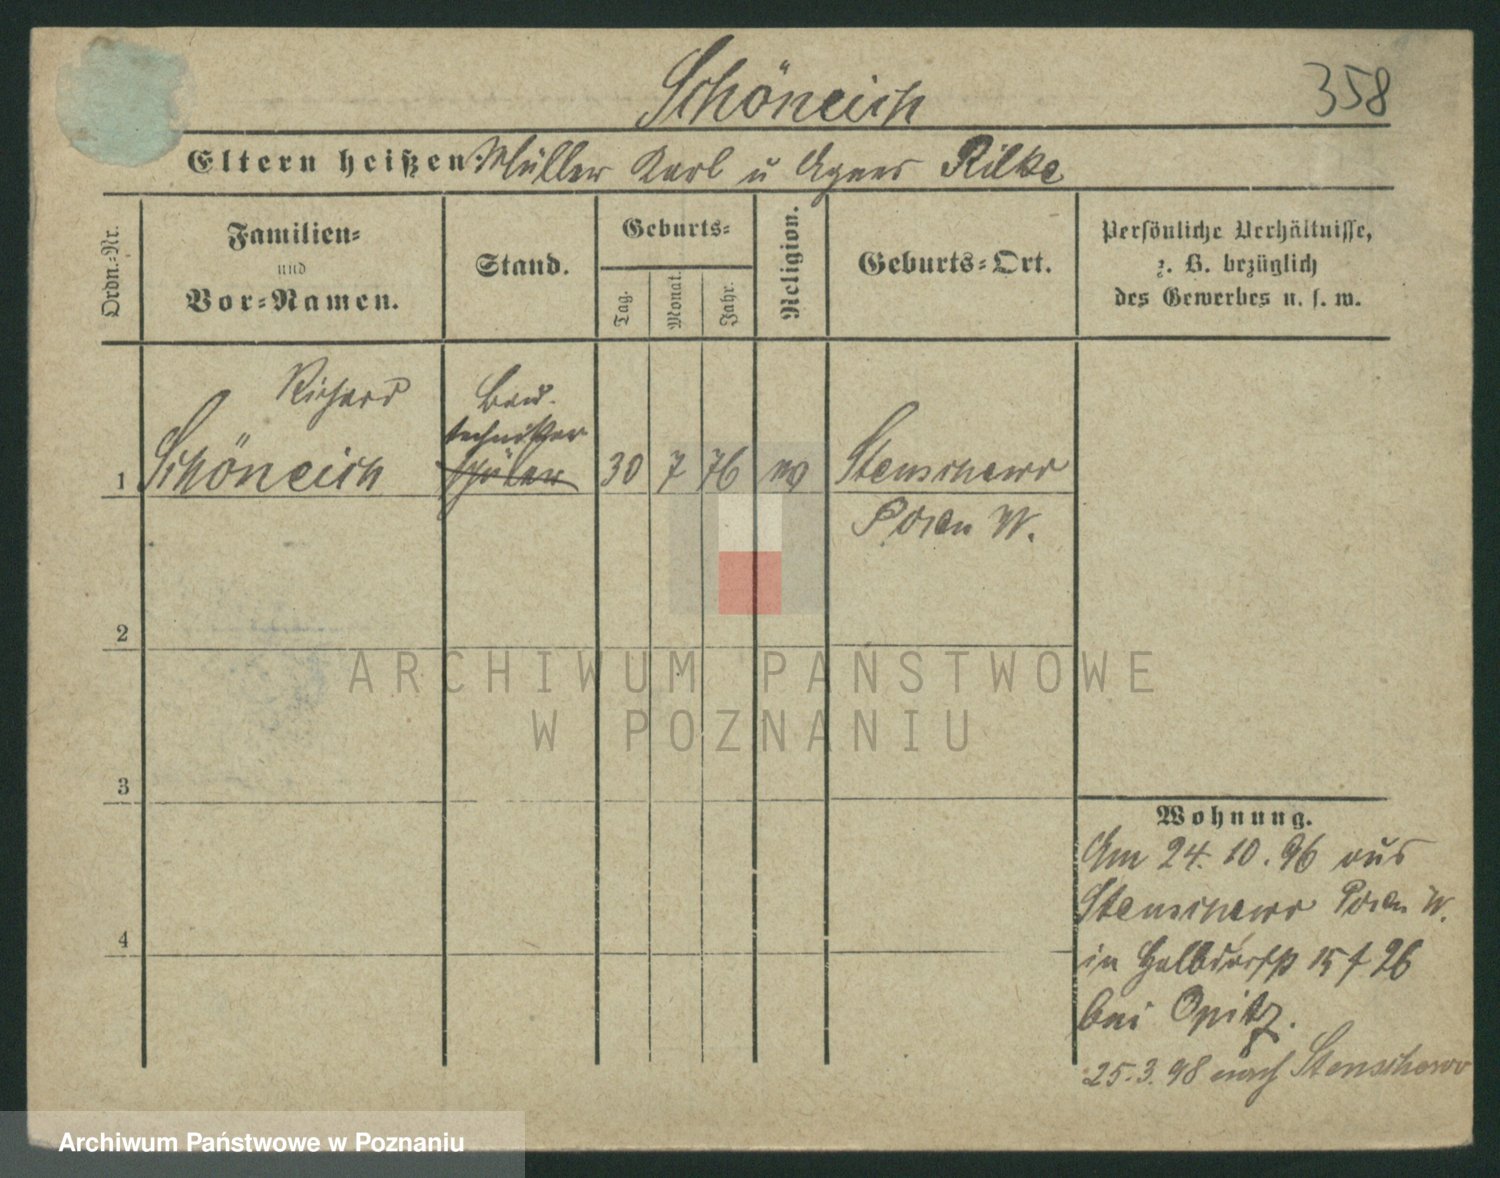 Schöneich
358
Eltern heißen: Müller Karl u Agnes Rilke
Ordn.=Nr.
Familien=
und
Vor=Namen.
Stand.
Geburts=
Tag.
Monat.
Jahr.
Religion.
Geburts=Ort.
Persönliche Verhältnisse,
z. B. bezüglich
des Gewerbes u. s. w.
Richard
Bau-
techniker
1 Schöneich Schüler 30 7 76 Stenschewo
Posen W.
2
3
4
Wohnung.
Am 24. 10. 96 aus
Stenschewo Posen W.
in Halbdorfstr 15 f 26
bei Opitz.
25.3.98 nach Stenschewo
ARCHIWUM PAŃSTWOWE
W POZNANIU
Archiwum Państwowe w Poznaniu